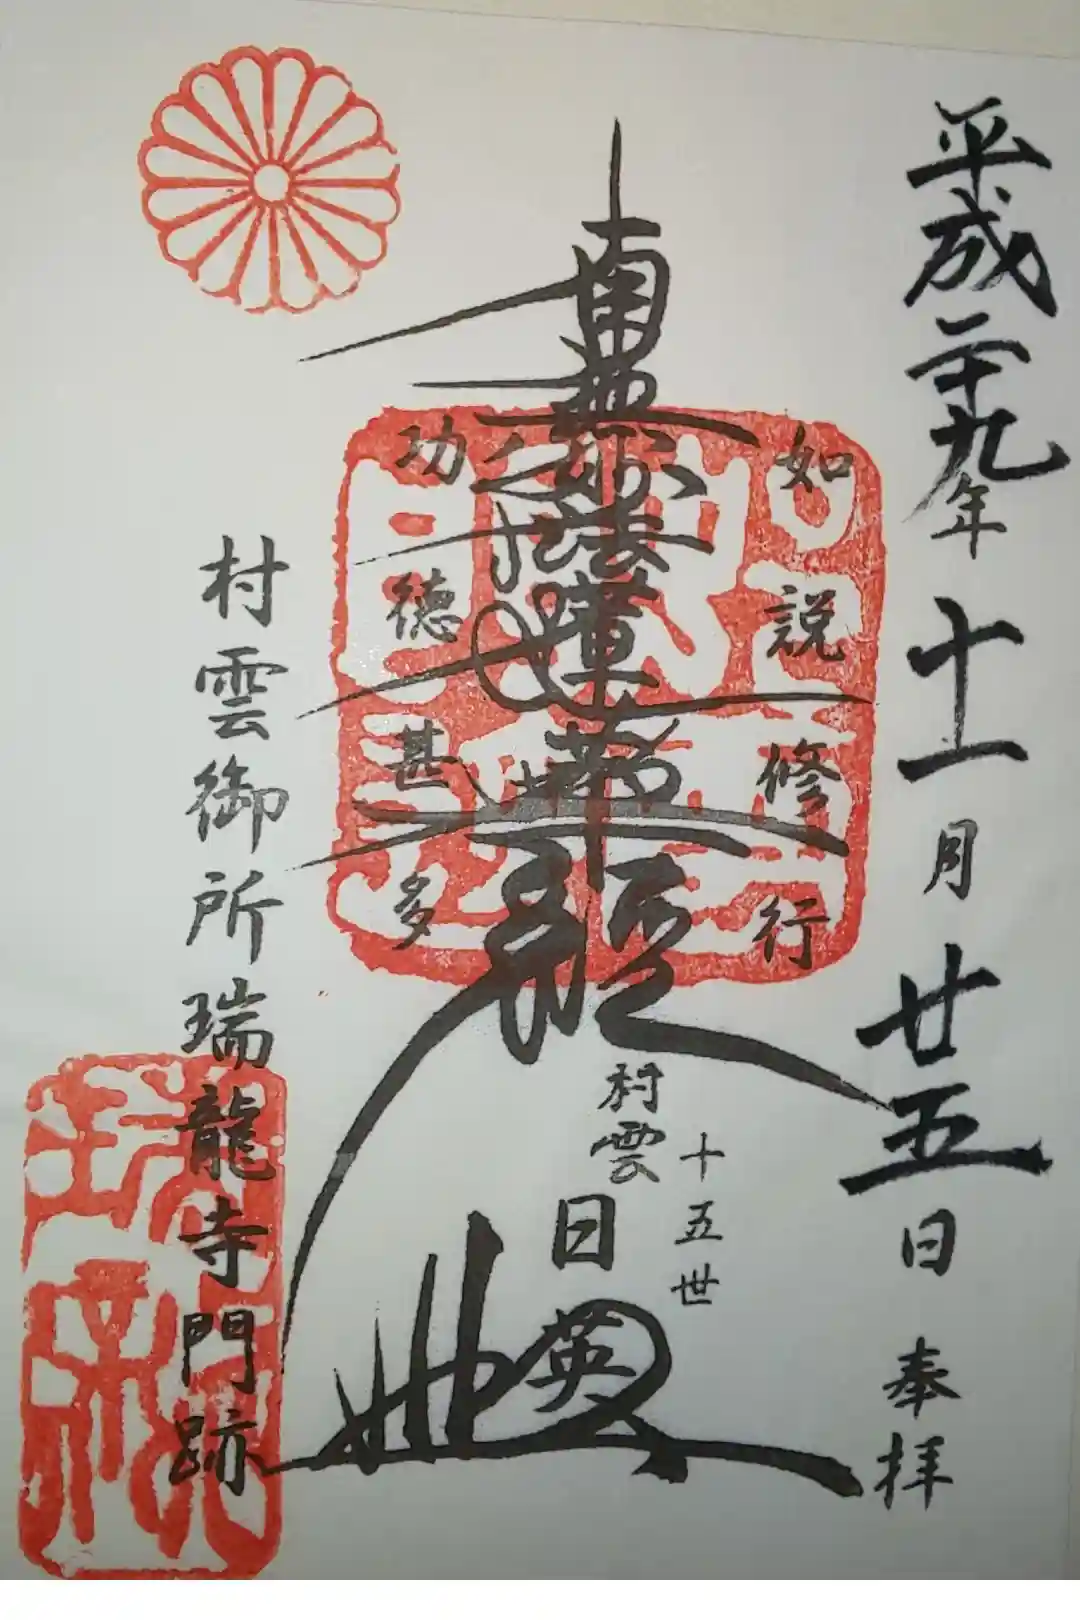 平成二十九年十一月廿五日 奉拝
如説修行
南無妙法蓮華経
功徳甚多
十五世
村雲
日英
村雲御所瑞龍寺門跡